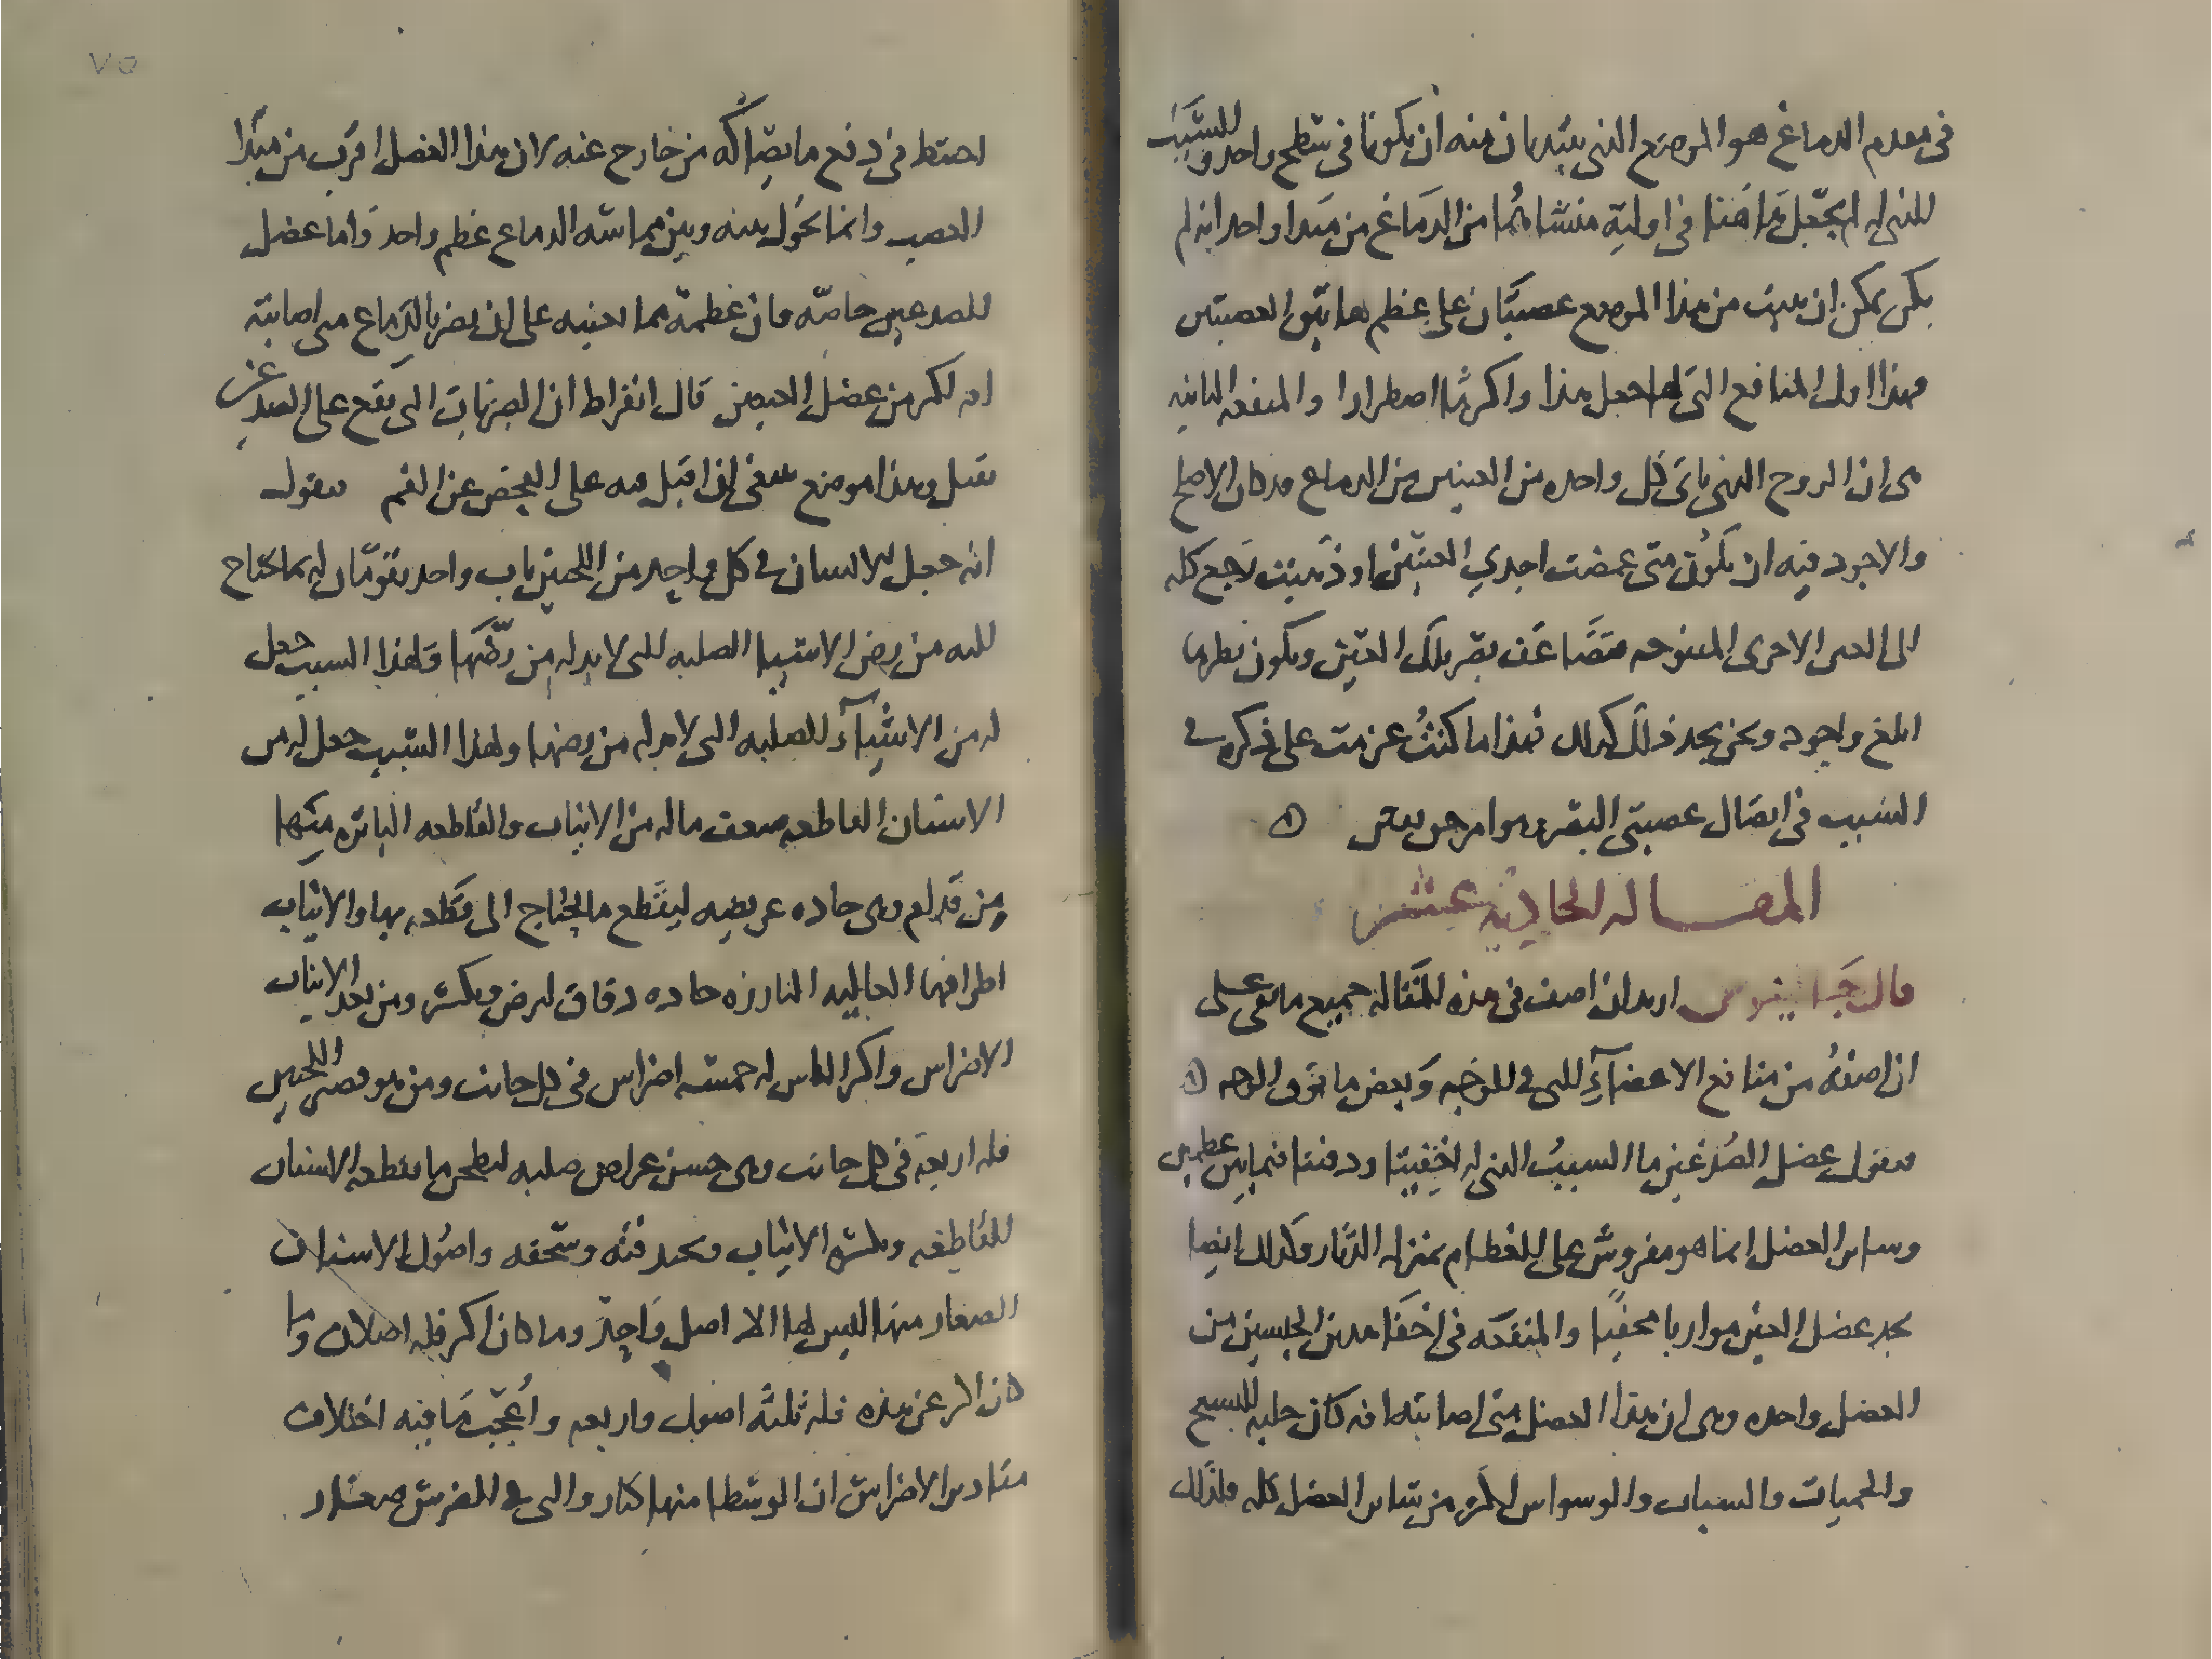 في مقدم الدماغ هو الموضع الذي يبتديان منه ان يكونا في سطح واحد والسبب
الذي له لم يجعل هاهنا في اولية منشاهما من الدماغ من مبدا واحد انه لم
يكن يمكن ان ينبت من هذا الموضع عصبتان على عظم هاتين العصبتين
فهذا اول المنافع التي لها جعل هذا واكثرها اضطرارا والمنفعه الثانيه
هي ان الروح الذي ياتي كل واحده من العينين من الدماغ قد كان الاصلح
والاجود فيه ان يكون متى غمضت احدي العينين او ذهبت رجع كله
الى العين الاخرى المفتوحه فتضاعف بصر تلك العين ويكون نظرها
ابلغ واجود ونحن نجد ذلك كذلك فهذا ما كنت عزمت على ذكره في
السبب في اتصال عصبتي البصر
المقاله الحادية عشر
قال جالينوس اريد ان اصف في هذه المقاله جميع ما بقي علي
ان اصفه من منافع الاعضآء التي في الوجه وبعض ما فوق الوجه
فنقول عضل الصدغين ما السبب الذي له اخفيتا ودفنتا فيما بين عظمين
وساير العضل انما هو مفروش على العظام بمنزله الدثار وكذلك ايضا
نجد عضل العين مواربا مخفيا والمنفعه في اخفا هذين الجنسين من
العضل واحده وهي ان هذا العضل متى اصابته افه كان جلبه للتشنج
والحميات والسبات والوسواس اكثر من ساير العضل كله فلذلك
٧٥
احتيط في دفع ما يصاكه من خارج عنه لان هذا العضل اقرب من مبدا
العصب وانما يحول بينه وبين مماسه الدماغ عظم واحد واما عضل
الصدغين خاصه فان عظمه مما يعينه على ان يضر بالدماغ متى اصابته
افه اكثر من عضل العينين قال ابقراط ان الضربات التي تقع على الصدغين
تقتل وهذا موضع ينبغي ان اقبل فيه على الفحص عن الفم فنقول
انه جعل للانسان في كل واحد من اللحيين ناب واحد يقومان له بما يحتاج
اليه من رض الاشيا الصلبه التي لابد له من رضها ولهذا السبب جعل
له من الاشيآء الصلبه التي لابد له من رضها ولهذا السبب جعل له من
الاسنان القاطعه ضعف ماله من الانياب والقاطعه الباتره منها
من قدام وهي حاده عريضه ليقطع ما يحتاج الى قطعه بها والانياب
اطرافها العاليه البارزه حاده دقاق لترض وتكسر ومن بعد الانياب
الاضراس واكثر الناس له خمسه اضراس في كل جانب ومن هو قصير اللحيين
فله اربعة في كل جانب وهي خشن عراض صلبه لتطحن ما تقطعه الاسنان
القاطعه وتكسره الانياب وتجيد فته وسحقه واصول الاسنان
الصغار منها ليس لها الا اصل واحد وما كان اكبر فله اصلان وما
كان اكبر عن هذه فله ثلثه اصول واربعه واعجب ما فيه اختلاف
مقادير الاضراس ان الوسطا منها كبار والتي في الطرفين صغار